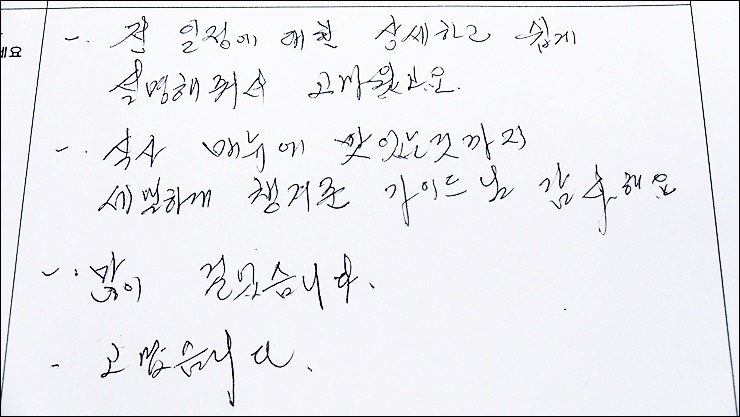 세요
전 일정에 대한 상세하고 쉽게
설명해줘서 고마웠어요.
식사 메뉴에 맛있는것까지
세밀하게 챙겨준 가이드님 감수해요
많이 걸었습니다.
고맙습니다.